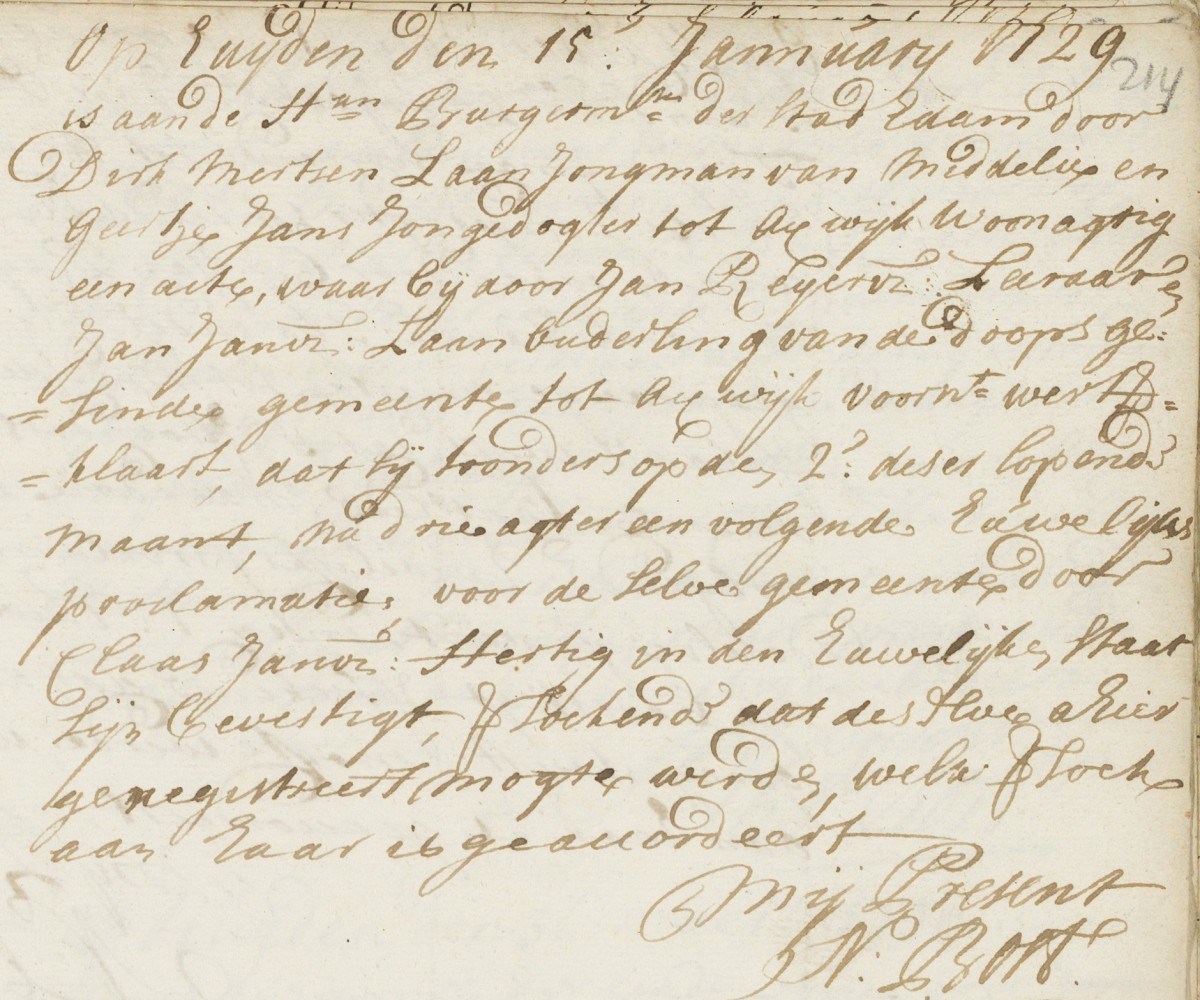 Op Huijden den 15: Jannuary 1729
214
is aande H:en Burgerm:rn der Stad Edam door
Dirk Mertsen Laan Jongman van Middelie en
Geertje Jans Jongedogter tot Axwijk Woonagtig
een acte, waar bij door Jan Reyersz: Leraar en
Jan Jansz: Laan ouderling van de doops ge:
= sinde gemeente tot Axwijk voorn:t wert ver=
= klaart, dat sij tronders op den 2:e deser lopende
maant, na drie agter een volgende Euwelijks
proclamatien, voor de selve gemeente door
Claas Jansz: Hertig in den Euwelijken Staat
sijn bevestigt, versoekende dat deselve alhier
geregistreert mogte werden, welk versoek
aan haar is geaccordeert
Mij Present
N: Bort